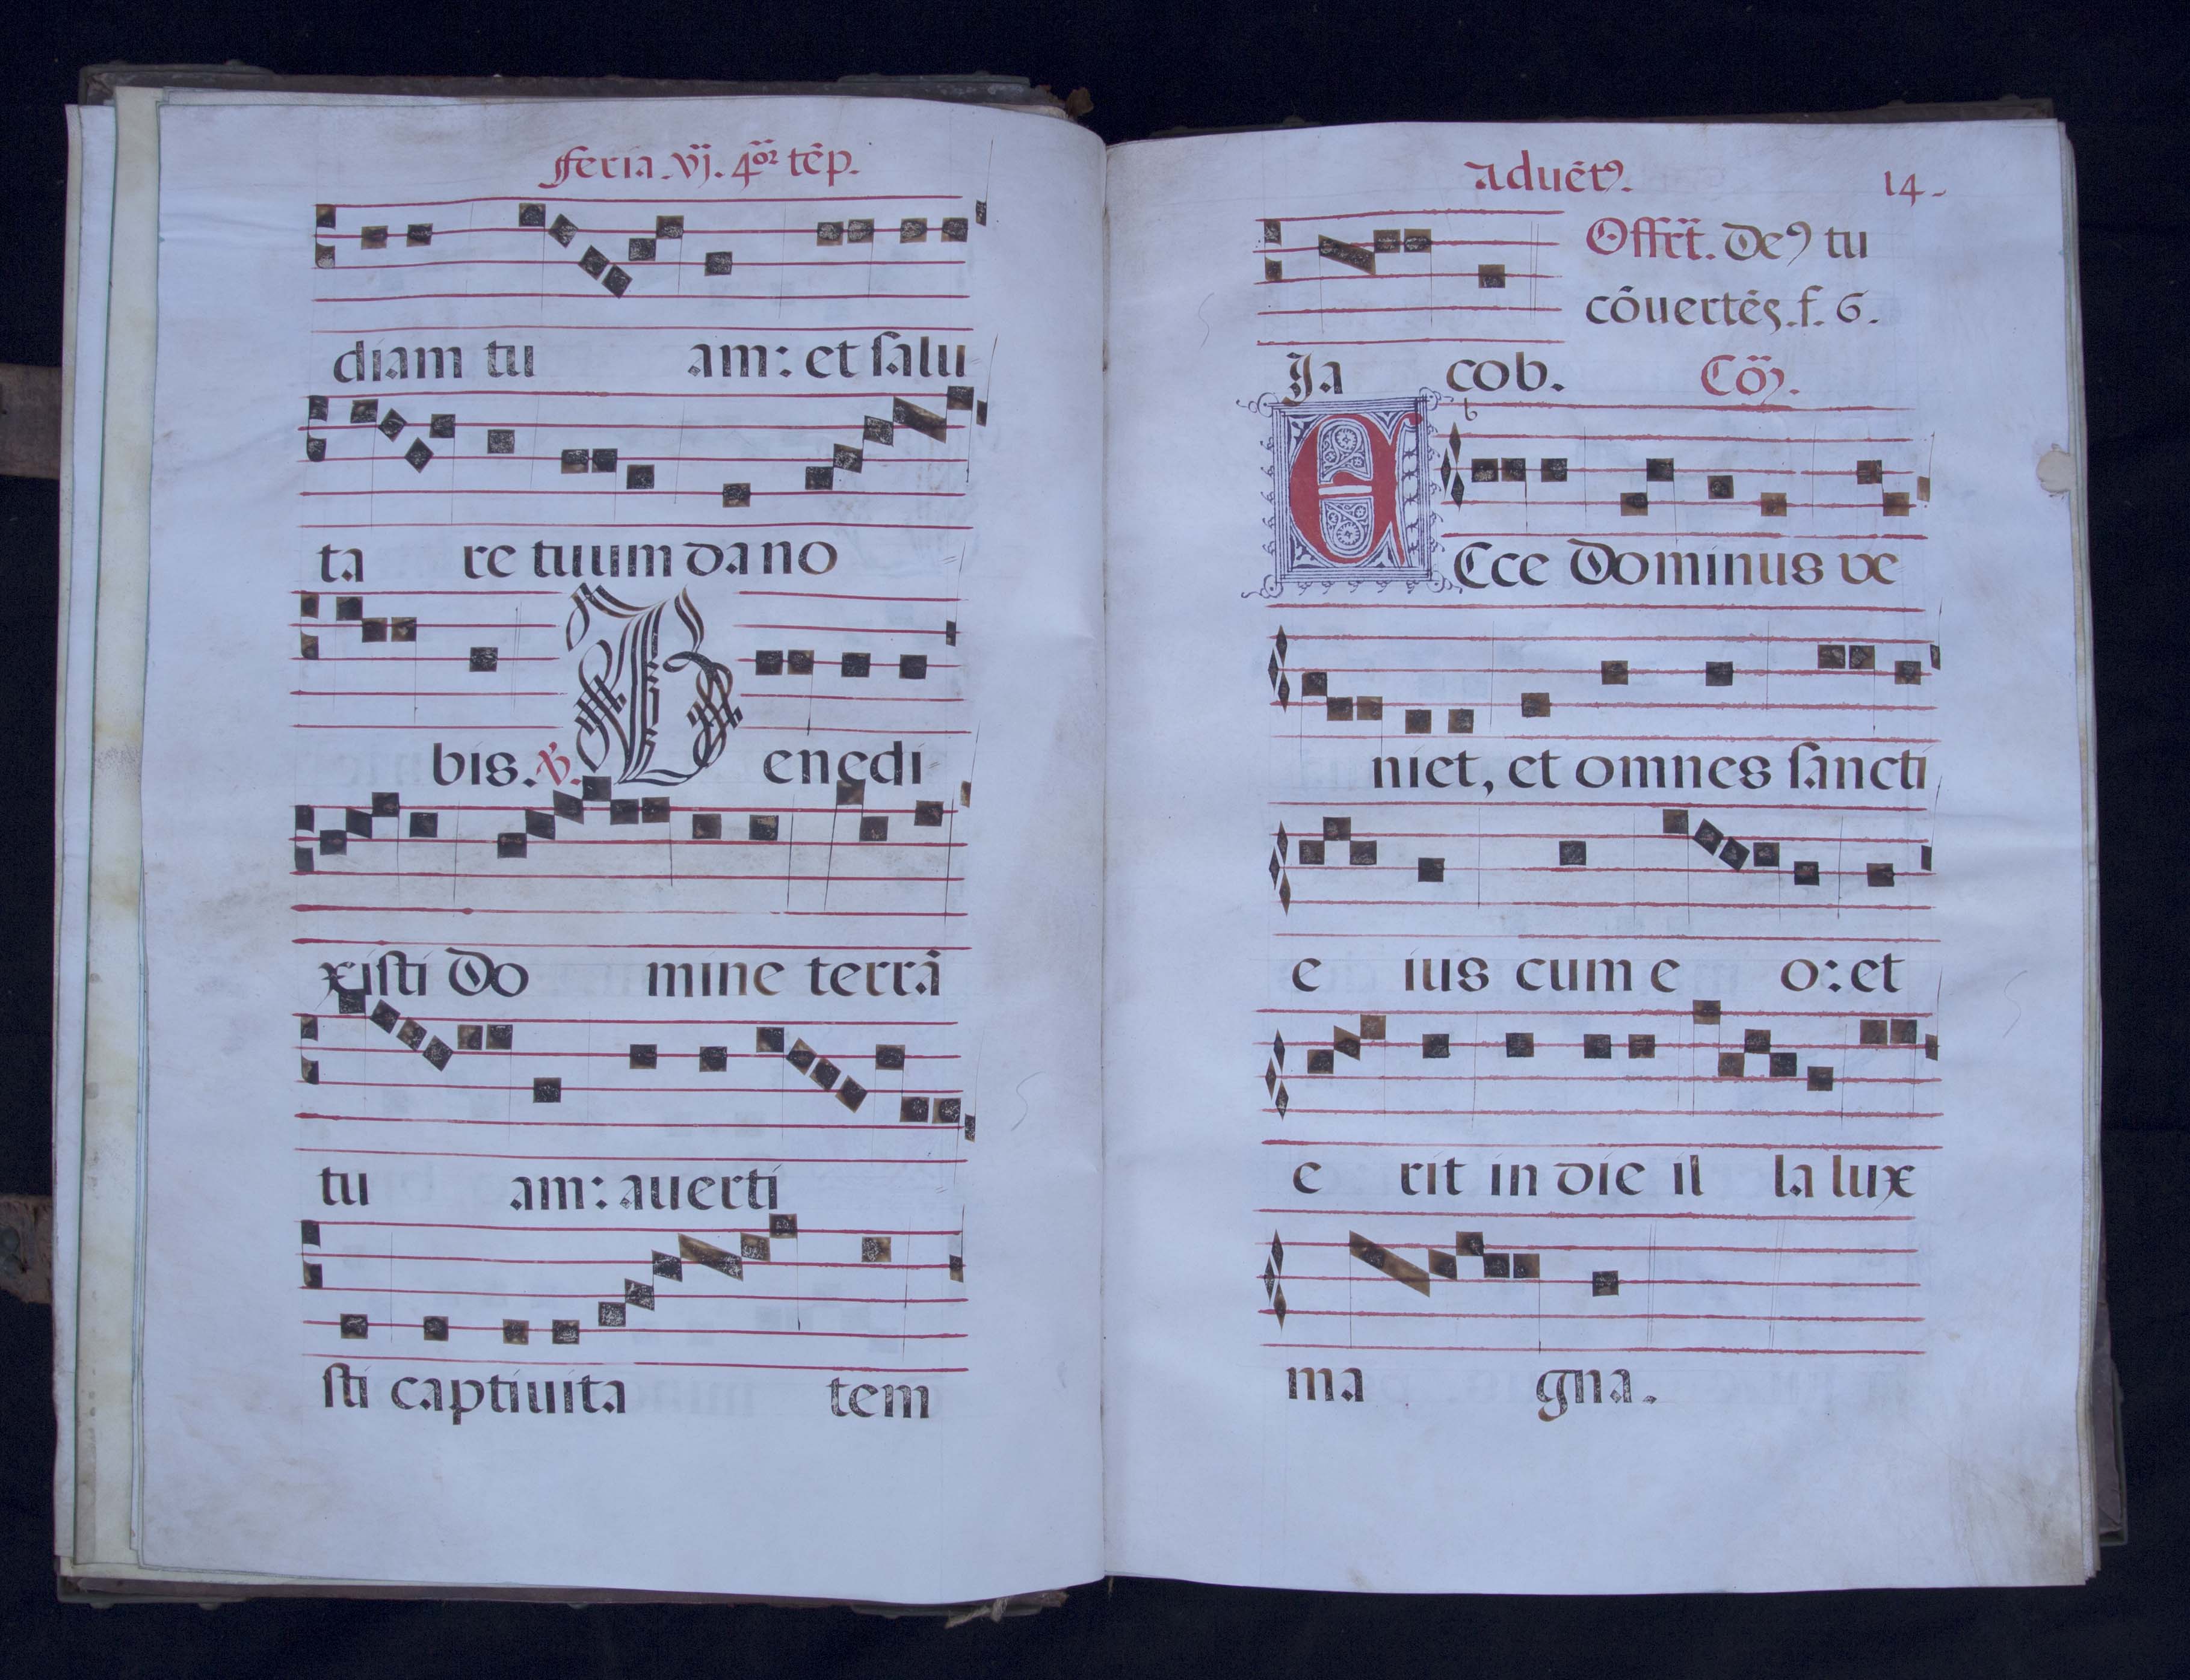 Feria. vj. 4or tẽp.
diam tu am: et ſalu
ta re tuum da no
bis. ℣. Benedi
xiſti Do mine terrã
tu am: auerti
ſti captiuita tem
Aduẽtꝰ. 14.
Offrt̃. Deꝰ tu
cõuertẽs. f. 6.
Ja cob. Cõ.
ECce Dominus ve
niet, et omnes ſancti
e ius cum e o: et
e rit in die il la lux
ma gna.